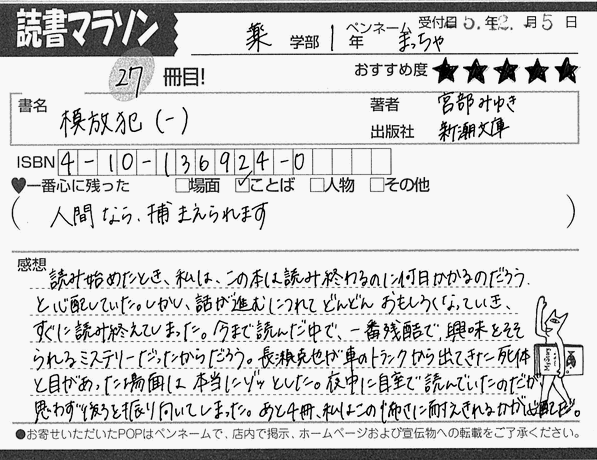 読書マラソン
薬 学部 1 年 ペンネーム まっちゃ 受付 5.年 2.月 5 日
27 冊目! おすすめ度 ★★★★★
書名 模放犯 (一) 著者 宮部みゆき
出版社 新潮文庫
ISBN 4-10-136924-0
♥一番心に残った □場面 ☑ことば □人物 □その他
( 人間なら、捕まえられます )
感想
読み始めたとき、私は、この本は読み終わるのに何日かかるのだろう
と心配していた。しかし、話が進むにつれてどんどんおもしろくなっていき、
すぐに読み終えてしまった。今まで読んだ中で、一番残酷で、興味をそそ
られるミステリーだったからだろう。長瀬克也が車のトランクから出てきた死体
と目があった場面は本当にゾッとした。夜中に自室で読んでいたのだが
思わず後ろを振り向いてしまった。あと4冊、私はこの怖さに耐えきれるかが心配だ。
●お寄せいただいたPOPはペンネームで、店内で掲示、ホームページおよび宣伝物への転載をご了承ください。